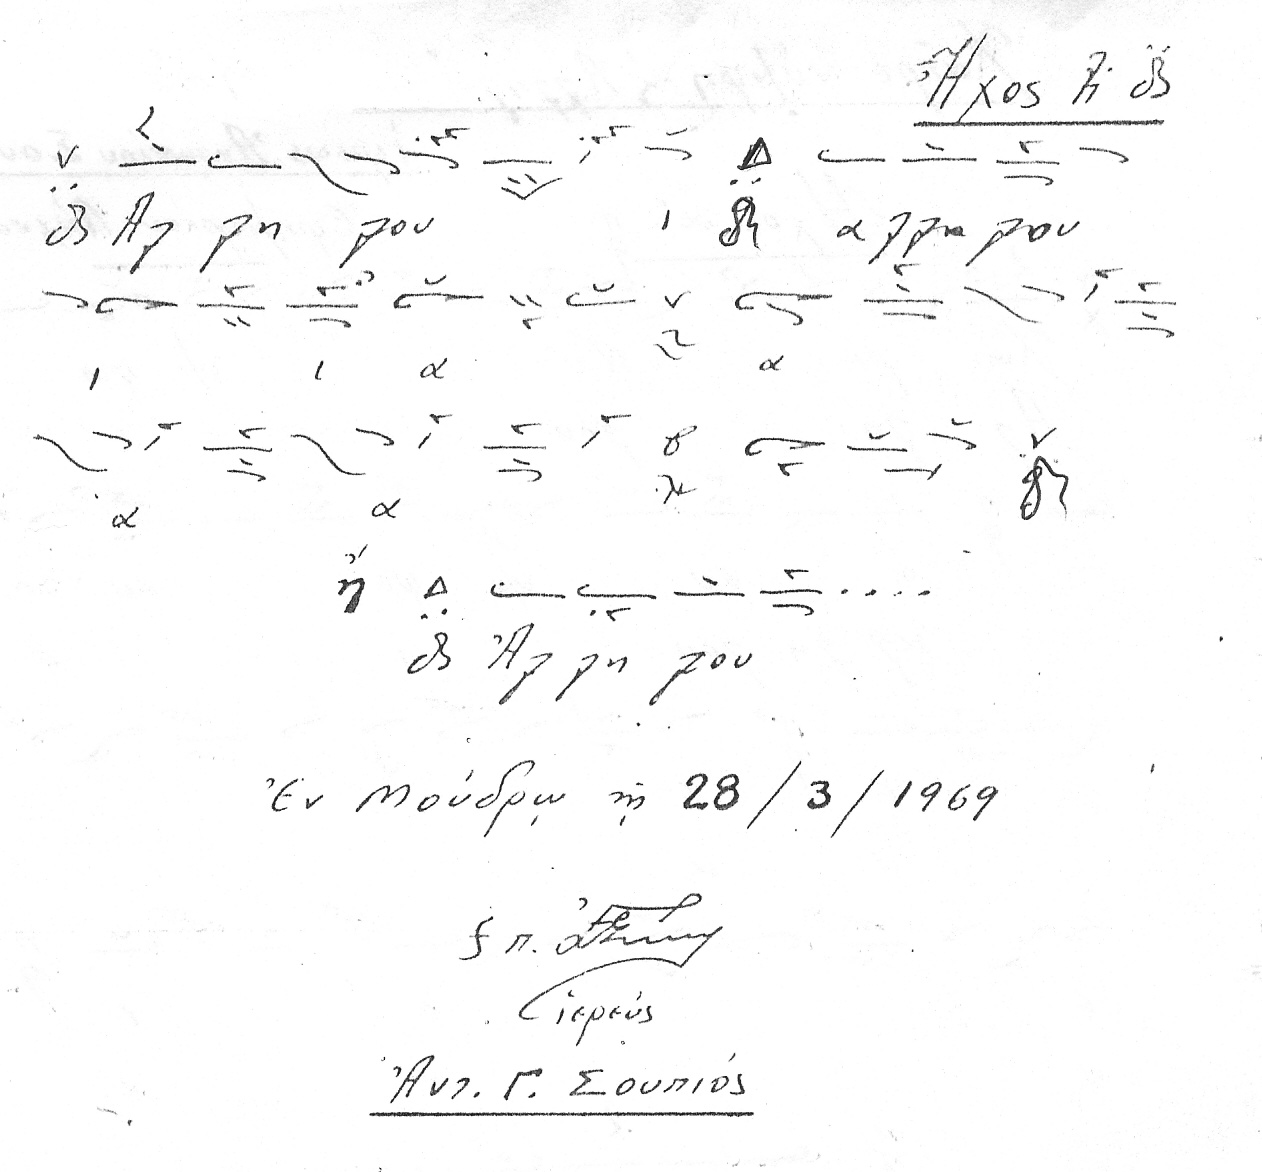 Ἦχος
Ἀλ λη λου ι α λλη λου
ι ι α α
α α
ἤ
Ἀλ λη λου
Ἐν Μούδρῳ τῇ 28/3/1969
π.
ἱερεύς
Ἀντ. Γ. Σουπιός